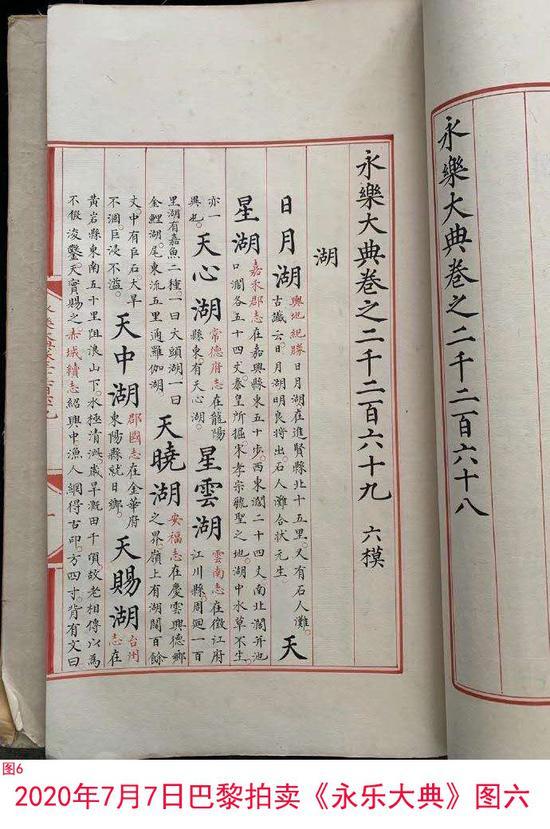 永樂大典卷之二千二百六十八
永樂大典卷之二千二百六十九 六模
湖
日月湖 輿地紀勝日月湖在進賢縣北十五里又有石人灘古讖云日月湖明良將出石人灘合狀元生 天
星湖 嘉禾郡志在嘉興縣東五十步西東濶二十四丈南北濶并池口濶各五十四丈秦皇所掘宋孝宗毓聖之地湖中水草不生
亦一異也 天心湖 常德府志在龍陽縣東有天心湖 星雲湖 雲南志在澂江府江川縣周廻一百
里湖有嘉魚二種一曰大頭湖一曰金鯉湖尾東流五里通羅伽湖 天曉湖 安福志在慶雲興德鄉之界嶺上有湖闊百餘
丈中有巨石大旱不涸巨浸不溢 天中湖 郡國志在金華府東陽縣就日鄉 天賜湖 台州志在
黃岩縣東南五十里阻浪山下水極清 歲旱漑田千頃故老相傳以為
不假浚鑿天實賜之赤城續志紹興中漁人網得古印方四寸背有文曰
图6
2020年7月7日巴黎拍卖《永乐大典》图六